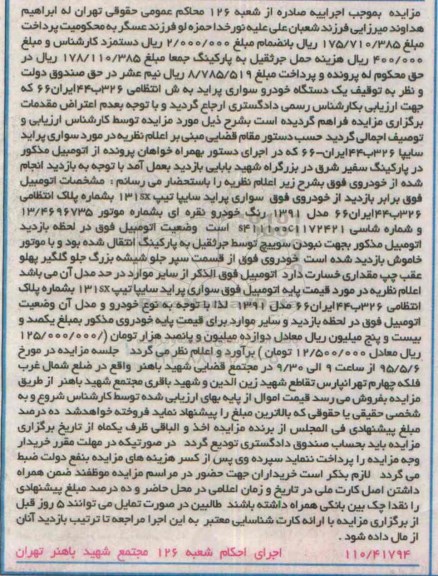 مزایده بموجب اجراییه صادره از شعبه ۱۲۶ محاکم عمومی حقوقی تهران له ابراهیم
هداوند میرزایی فرزند شعبان علی علیه نورخدا حمزه لو فرزند عسگر به محکومیت پرداخت
مبلغ ۱۷۵/۷۱۰/۳۸۵ ریال بانضمام مبلغ ۲/۰۰۰/۰۰۰ ریال دستمزد کارشناس و مبلغ
۴۰۰/۰۰۰ ریال هزینه حمل جرثقیل به پارکینگ جمعا مبلغ ۱۷۸/۱۱۰/۳۸۵ ریال در
حق محکوم له پرونده و پرداخت مبلغ ۸/۷۸۵/۵۱۹ ریال نیم عشر در حق صندوق دولت
و نظر به توقیف یک دستگاه خودرو سواری پراید به ش انتظامی ۳۲۶ب۴۴ایران۶۶ که
جهت ارزیابی بکارشناس رسمی دادگستری ارجاع گردید و با توجه بعدم اعتراض مقدمات
برگزاری مزایده فراهم گردیده است بشرح ذیل مورد مزایده توسط کارشناس ارزیابی و
توصیف اجمالی گردید حسب دستور مقام قضایی مبنی بر اعلام نظریه در مورد سواری پراید
سایپا ۳۲۶ب۴۴ایران-۶۶ که در اجرای دستور بهمراه خواهان پرونده از اتومبیل مذکور
در پارکینگ سفیر شرق در بزرگراه شهید بابایی بازدید بعمل آمد با توجه به بازدید انجام
شده از خودروی فوق بشرح زیر اعلام نظریه را باستحضار می رسانم : مشخصات اتومبیل
فوق برابر بازدید از خودروی فوق سواری پراید سایپا تیپ ۱۳۱sx بشماره پلاک انتظامی
۳۲۶ب۴۴ایران۶۶ مدل ۱۳۹۱ رنگ خودرو نقره ای بشماره موتور ۱۳/۴۶۹۶۷۳۵
و شماره شاسی است وضعیت اتومبیل فوق در لحظه بازدید
اتومبیل مذکور بجهت نبودن سوییچ توسط جرثقیل به پارکینگ انتقال شده بود و با موتور
خاموش بازدید شده است خودروی فوق از قسمت سپر جلو شیشه بزرگ جلو گلگیر پهلو
عقب چپ مقداری خسارت دارد اتومبیل فوق الذکر از سایر موارد در حد مدل آن می باشد
اعلام نظریه در مورد قیمت پایه اتومبیل فوق سواری پراید سایپا تیپ ۱۳۱sx بشماره پلاک
انتظامی ۳۲۶ب۴۴ایران۶۶ مدل ۱۳۹۱ لذا با توجه به نوع خودرو و مدل آن وضعیت
اتومبیل فوق در لحظه بازدید و سایر موارد برای قیمت پایه خودروی مذکور بمبلغ یکصد و
بیست و پنج میلیون ریال معادل دوازده میلیون و پانصد هزار تومان (۱۲۵/۰۰۰/۰۰۰
ریال معادل ۱۲/۵۰۰/۰۰۰ تومان) برآورد و اعلام نظر می گردد جلسه مزایده در مورخ
۹۵/۵/۶ از ساعت ۹ الی ۹/۳۰ در مجتمع قضایی شهید باهنر واقع در ضلع شمال غرب
فلکه چهارم تهرانپارس تقاطع شهید زین الدین و شهید باقری مجتمع شهید باهنر از طریق
مزایده بفروش می رسد قیمت اموال از پایه بهای ارزیابی شده توسط کارشناس شروع و به
شخصی حقیقی یا حقوقی که بالاترین مبلغ را پیشنهاد نماید فروخته خواهدشد ده درصد
مبلغ پیشنهادی فی المجلس از برنده مزایده اخذ و الباقی ظرف یکماه از تاریخ برگزاری
مزایده باید بحساب صندوق دادگستری تودیع گردد در صورتیکه در مهلت مقرر خریدار
وجه مزایده را پرداخت ننماید سپرده وی پس از کسر هزینه های مزایده بنفع دولت ضبط
می گردد لازم بذکر است خریداران جهت حضور در مراسم مزایده موظفند ضمن همراه
داشتن اصل کارت ملی در تاریخ و زمان اعلامی در محل حاضر و ده درصد مبلغ پیشنهادی
را نقدا چک بین بانکی همراه داشته باشند طالبین در صورت تمایل می توانند ۵ روز قبل
از برگزاری مزایده با ارائه کارت شناسایی معتبر به این اجرا مراجعه تا ترتیب بازدید آنان
از مال داده شود .
۱۱۰/۴۱۷۹۴ اجرای احکام شعبه ۱۲۶ مجتمع شهید باهنر تهران